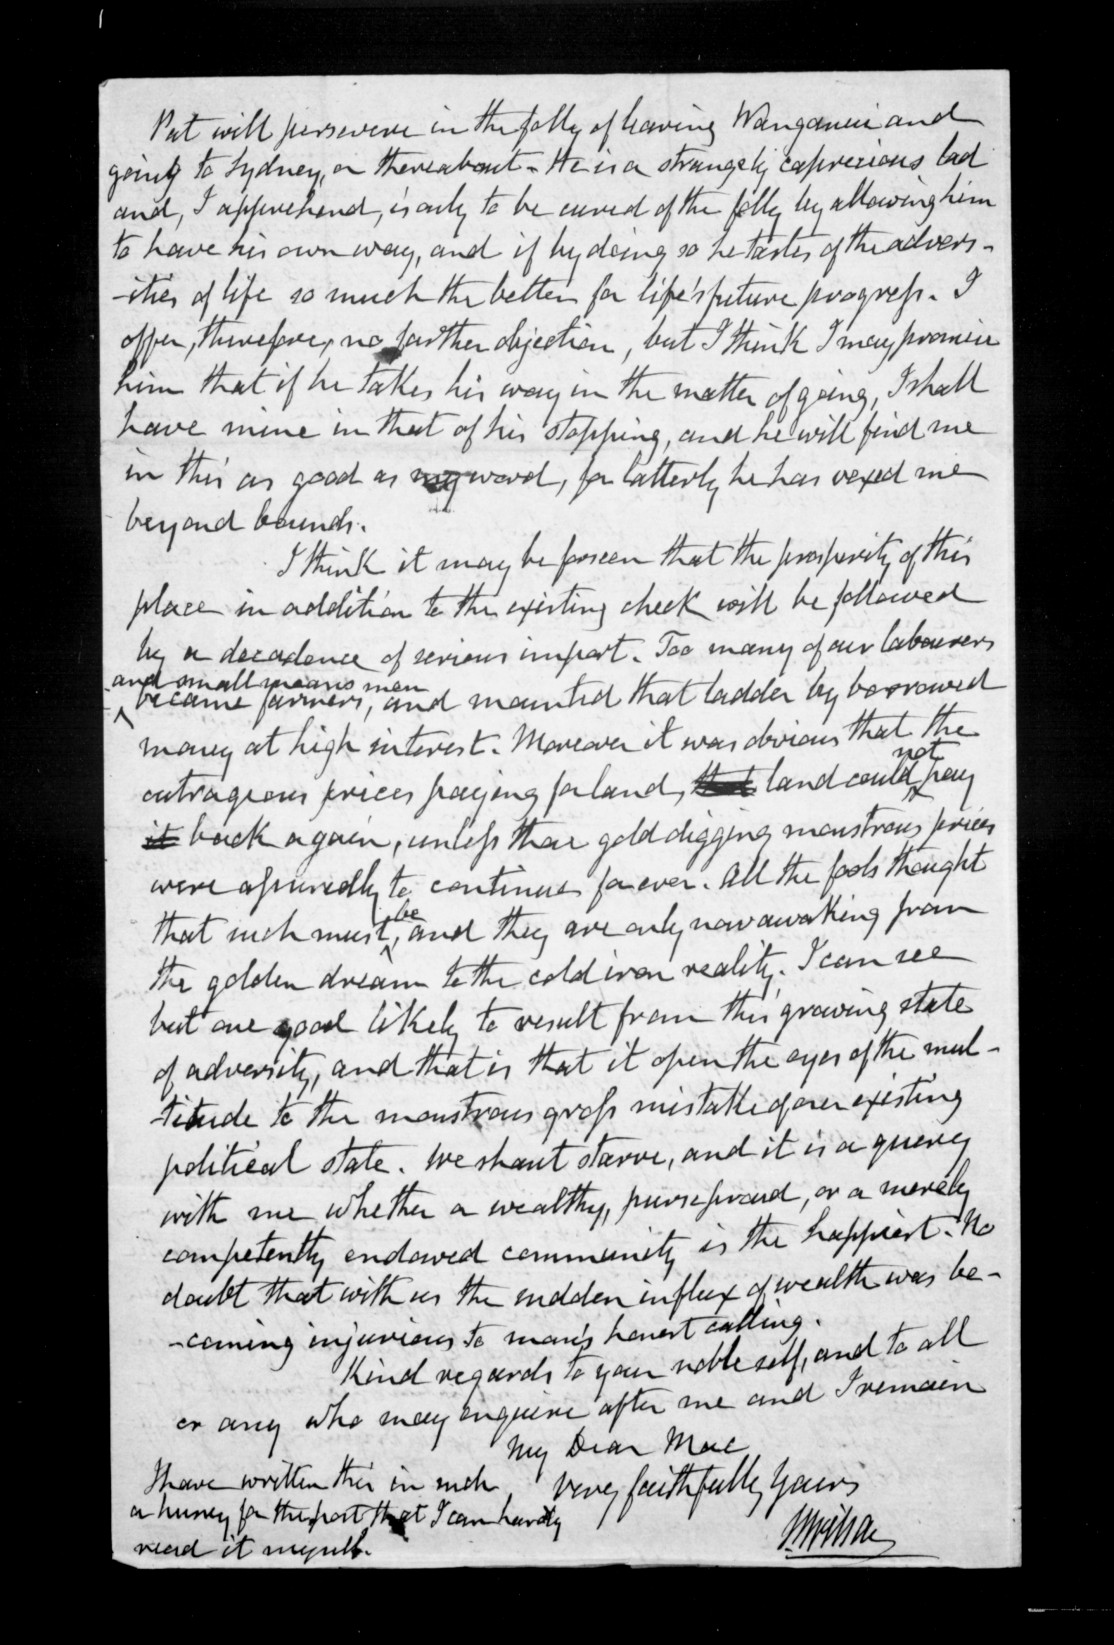 Pat will persevere in the folly of leaving Wanganui and
going to Sydney, or thereabout - He is a strangely capricious lad
and, I apprehend, is only to be cured of the folly by allowing him
to have his own way, and if by doing so he tastes of the advers-
-ities of life so much the better for life's future progress. I
offer, therefore, no further objection, but I think I may promise
him that if he takes his way in the matter of going, I shall
have mine in that of his stopping, and he will find me
in this as good as my word, for latterly he has vexed me
beyond bounds.
I think it may be forseen that the prosperity of this
place in addition to the existing check will be followed
by a decadence of serious import. Too many of our labourers
and small means men
became farmers, and mounted that ladder by borrowed
money at high interest. Moreover it was obvious that the
not
outrageous prices paying for land, that land could pay
it back again, unless thoae gold digging monstrous prices
were assuredly to continue for ever. All the fools thought
be
that such must, and they are only now awaking from
the golden dream to the cold iron reality. I can see
but one good likely to result from this growing state
of adversity, and that is that it open the eyes of the mul-
-titude to the monstrous gross mistake of our existing
political state. We shant starve, and it is a querey
with me whether a wealthy, purseproud, or a merely
competently endowed community is the happiest. No
doubt that with us the sudden influx of wealth was be-
-coming injurious to man's honest calling.
Kind regards to your noble self, and to all
or any who may enquire after me and I remain
My Dear Mac
Very faithfully Yours
I have written this in such
a hurrey for the post that I can hardly
read it myself.